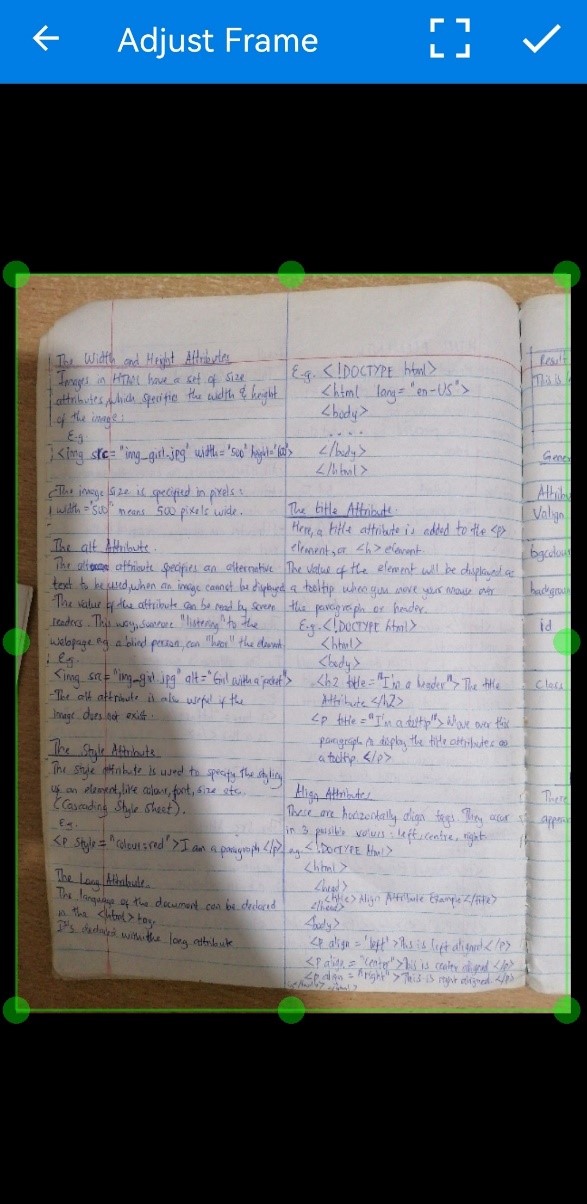 Adjust Frame
The Width and Height Attributes
Images in HTML have a set of size
attributes, which specifies the width & height
of the image:
E.g
<img src="img_girl.jpg" width="500" height="600">
The image size is specified in pixels:
width="500" means 500 pixels wide.
The alt Attribute.
The alt attribute specifies an alternative
text to be used, when an image cannot be displayed
The value of the attribute can be read by screen
readers. This way, someone "listening" to the
webpage e.g a blind person, can "hear" the element
E.g.
<img src="img_girl.jpg" alt="Girl with a jacket">
The alt attribute is also useful if the
image does not exist.
The Style Attribute.
The style attribute is used to specify the styling
of an element, like colour, font, size etc.
(Cascading Style Sheet).
E.g.
<p style="colour:red">I am a paragraph</p>
The Lang Attribute.
The language of the document can be declared
in the <html> tag.
It's declared with the lang attribute
E.g. <!DOCTYPE html>
<html lang="en-US">
<body>
....
</body>
</html>
The title Attribute.
Here, a title attribute is added to the <p>
element, or <h> element.
The value of the element will be displayed as
a tooltip when you move your mouse over
the paragraph or header.
E.g. <!DOCTYPE html>
<html>
<body>
<h2 title="I'm a header"> The title
Attribute </h2>
<p title="I'm a tooltip"> Move over this
paragraph to display the title attributes as
a tooltip. </p>
Align Attributes
These are horizontally align tags. They occur
in 3 possible values: left, centre, right.
e.g. <!DOCTYPE html>
<html>
<head>
<title> Align Attribute Example </title>
</head>
<body>
<p align="left">This is left aligned</p>
<p align="center">This is center aligned</p>
<p align="right">This is right aligned</p>
</body> </html>
Result
This is
Gener
Attribu
Valign
bgcolour
backgrou
id
Class
There
appear